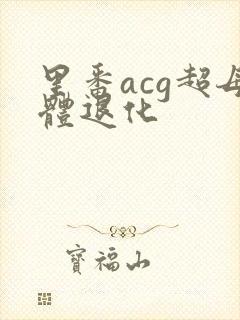 里番acg超母
體退化
寶福山